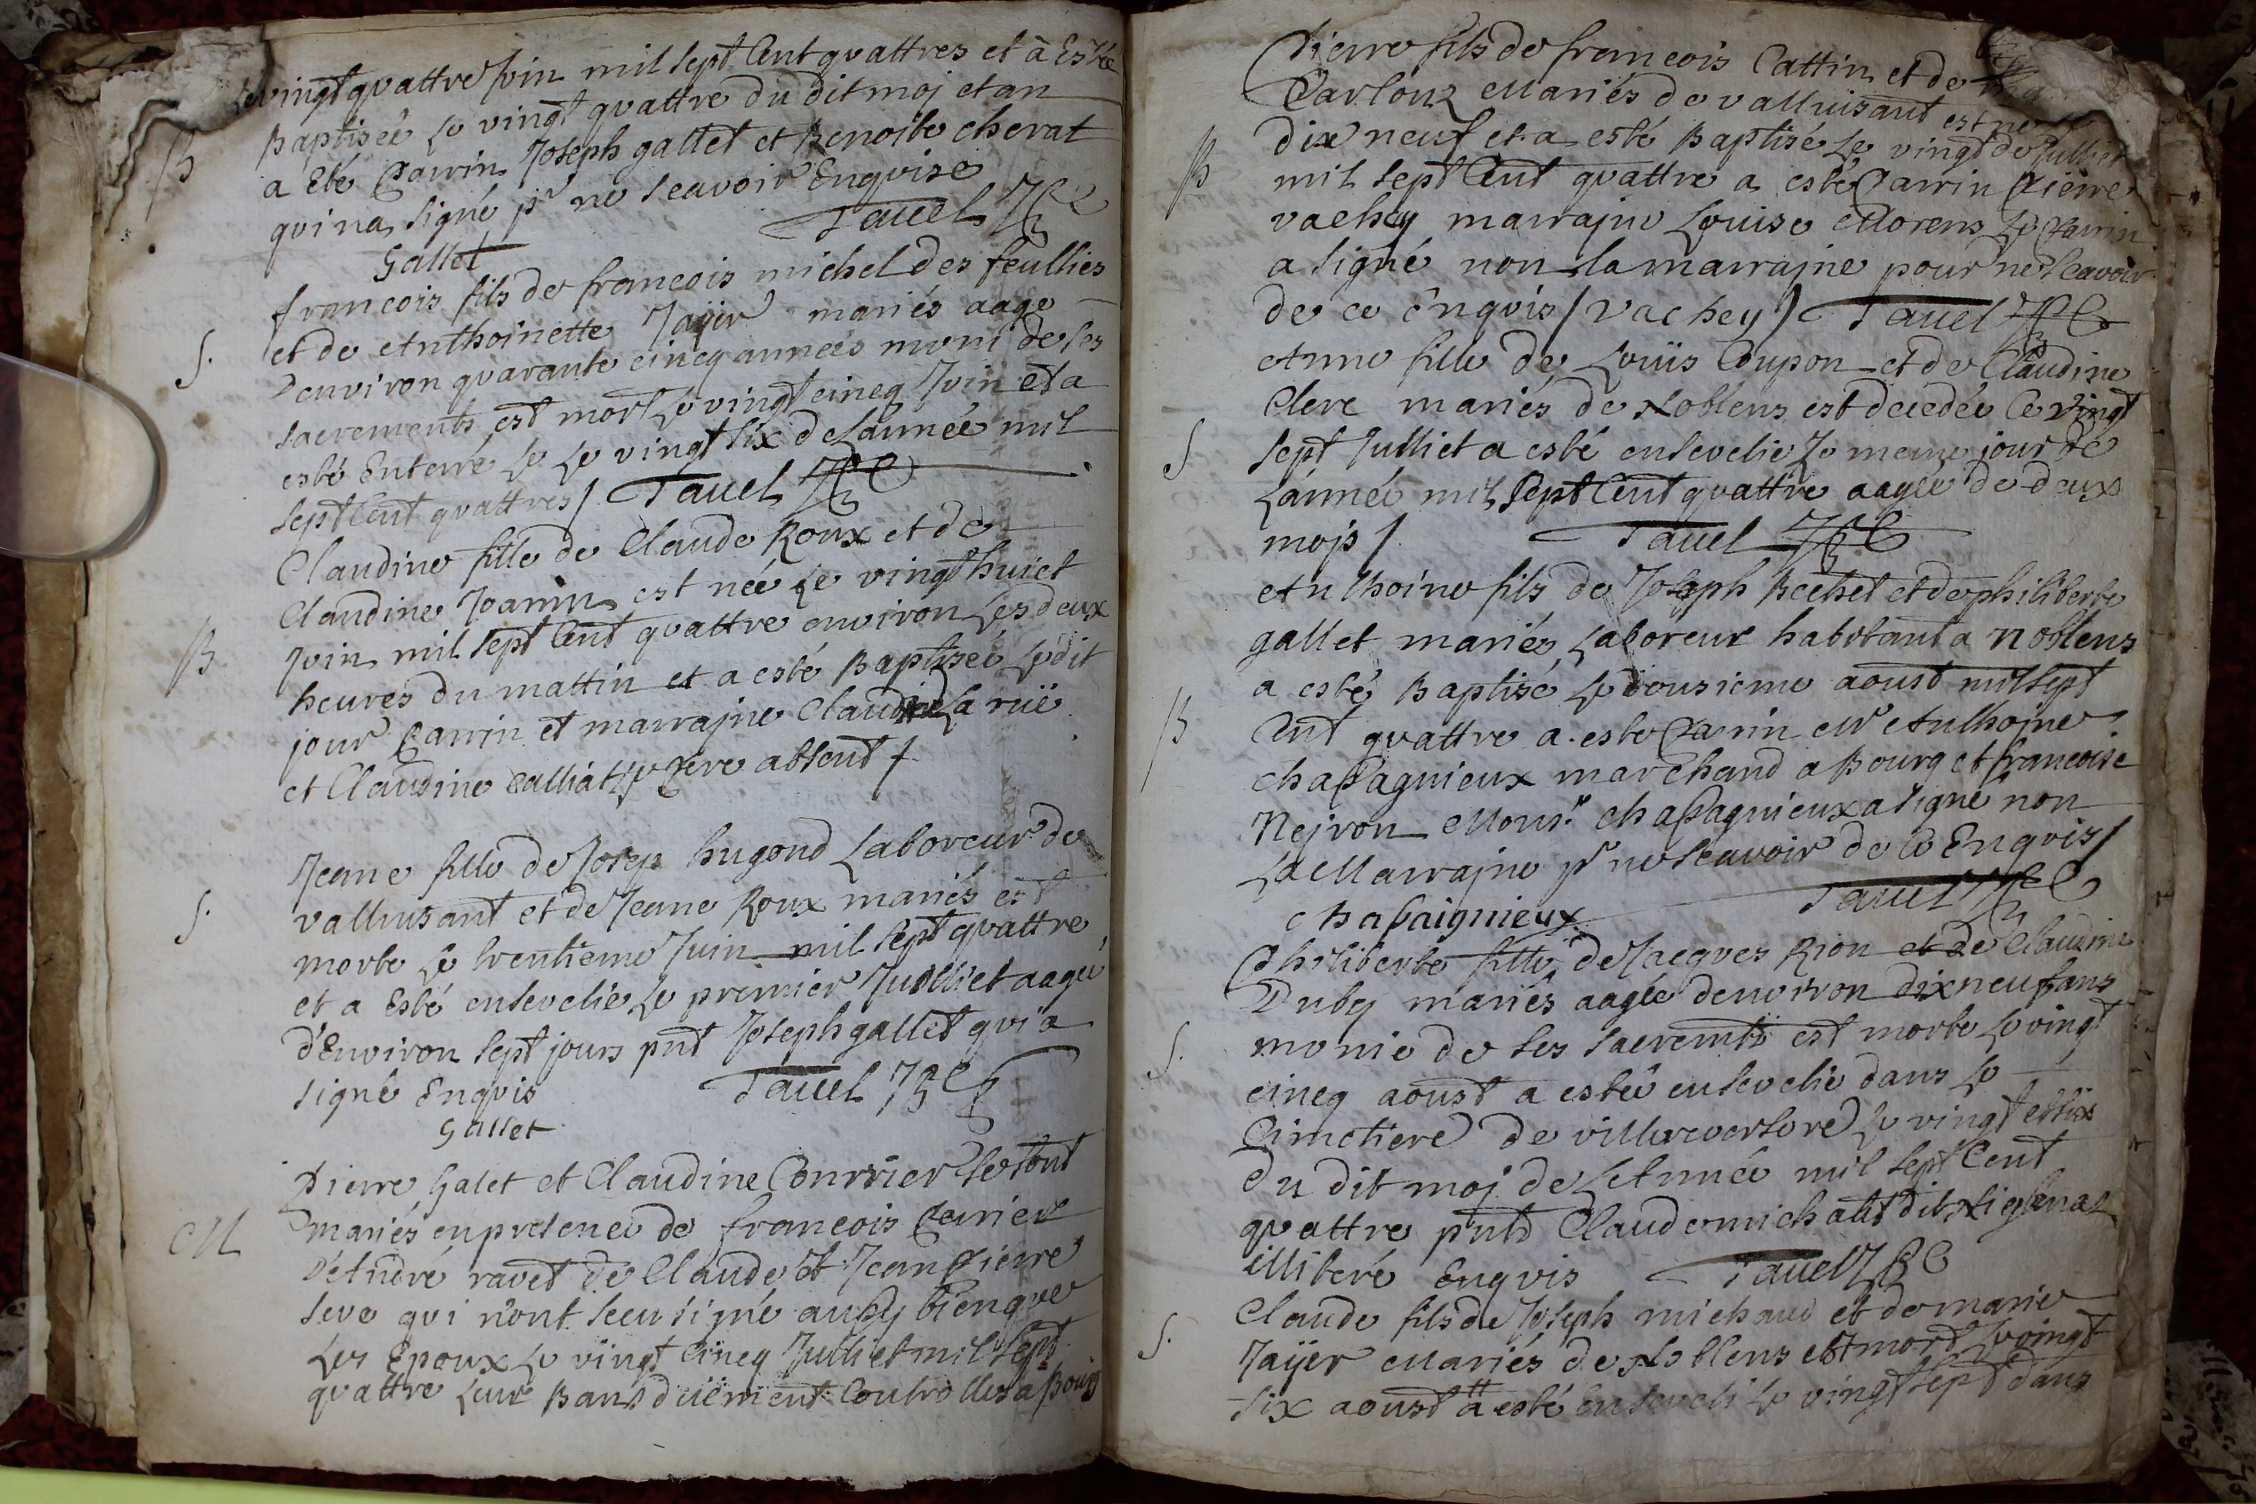 Le vingt quattre Juin mil sept Cent quattres et à Esté
B
Baptiseé Le vingt quattre du dit moj et an
a Eté Parrin Joseph gallet et Benoite cherat
qui na signé pr ne Scavoir Enquise
Tauel
Gallet
francois fils de francois michel des feullies
et de Anthoinette Jaÿer mariés aage
S.
D'environ quarante cincq anneés muni de ses
sacrements est mort Le vingt cincq Juin et a
esté Enterré Le Le vingt six de Lánneé mil
sept Cent quattres / Tauel
Claudine fille de Claude Roux et de
Claudine Joanin est née Le vingt huict
B
Juin mil sept Cent quattre environ Les deux
heures du mattin et a esté Baptiseé Ledit
jour Parrin et marrajne Claude La ruë
et Claudine Calliat Le Pere absent /.
Jeane fille de Josep hugond Laboreur de
S.
valluisant et de Jeane Roux mariés est
morte Le trentieme Juin mil sept quattre,
et a Esté ensevelie Le premier Juilliet aageé
d'Environ sept jours pnt Joseph gallet qui a
signé Enquis Tauel
Gallet
Pierre Galet et Claudine Courrier se sont
M
mariés en presence de francois Perrier
d'André ravet de Claude et Jean Pierre
seve qui n'ont sceu signé aussy bien que
Les Epoux Le vingt Cincq Julliet mil sept
quattre Leur Bans duëment Controlles a Bourg
Pierre fils de francois Cattin et de
Carlouz Mariés de valluisant est né
B
dix neuf et a esté Baptisé Le vingt de Julliet
mil sept Cent quattre a esté Parrin Pierre
vachey marrajne Louise Morens Le Parrin
a signé non la marrajne pour ne Scavoir
de ce énquis / Vachey / Tauel
Anne fille de Loüis Cupon et de Claudine
Clerc mariés de Noblens est decedée Ce vingt
S
sept Julliet a esté ensevelie Le meme jour de
Lánneé mil sept Cent quattre aageé de deux
mojs / Tauel
Anthoine fils de Joseph Bechet et de philiberte
gallet mariés Laboreur habitant a Noblens
a esté Baptisé Le dousieme aoust mil sept
B
Cent quattre a esté Parrin Mr Anthoine
chaßagnieux marchand a Bourg et francoise
Nejron Monsr. chaßagnieux a signé non
La Marrajne pr ne scavoir de ce Enquis /
Tauel
chaßaignieux
Philiberte fille de Jacques Rion et de Claudine
Duby mariés aageé denviron dix neuf ans
S.
munie de ses sacremts est morte Le vingt
cincq aoust a esteé ensevelie dans Le
Cimetiere de villereversure Le vingt et six
du dit moj de LAnneé mil sept Cent
quattre pnts Claude michaut dit
illiteré Enquis Tauel
S.
Claude fils de Joseph michaud et de marie
Jaÿer Mariés de Noblens est mort Le vingt
six aoust a esté Enseveli Le vingt sept dans